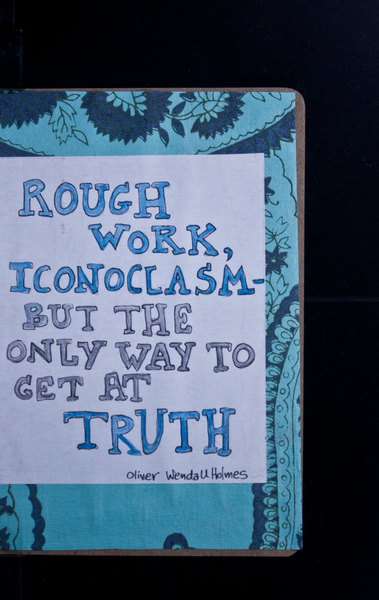 ROUGH
WORK,
ICONOCLASM-
BUT THE
ONLY WAY TO
GET AT
TRUTH
Oliver Wendall Holmes